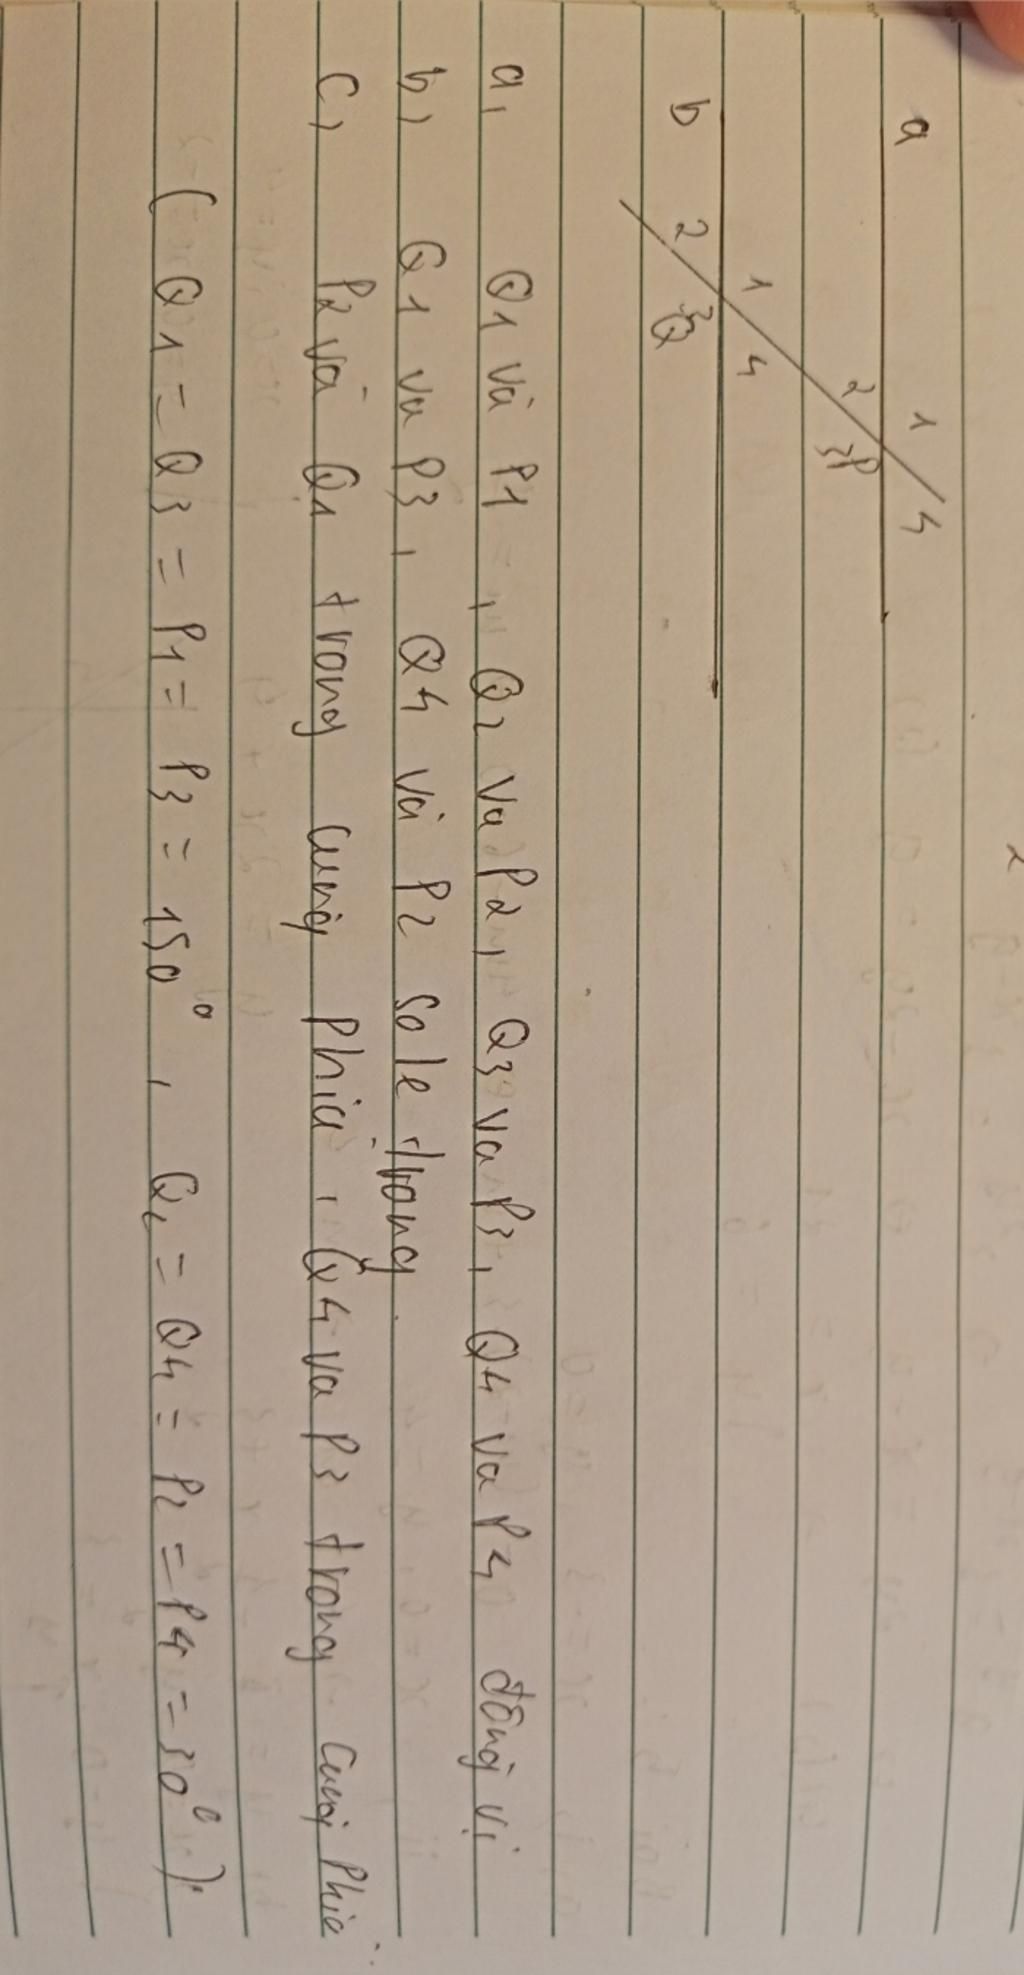 a
1 4
2 3P
b
1 4
2 3Q
a, Q1 và P1, Q2 va P2, Q3 va P3, Q4 va P4 đồng vị
b, Q1 va P3, Q4 và P2 so le trong.
c, P2 và Q1 trong cùng phía, Q4 va P3 trong cùng phía.
(Q1 = Q3 = P1 = P3 = 150°, Q2 = Q4 = P2 = P4 = 30°).